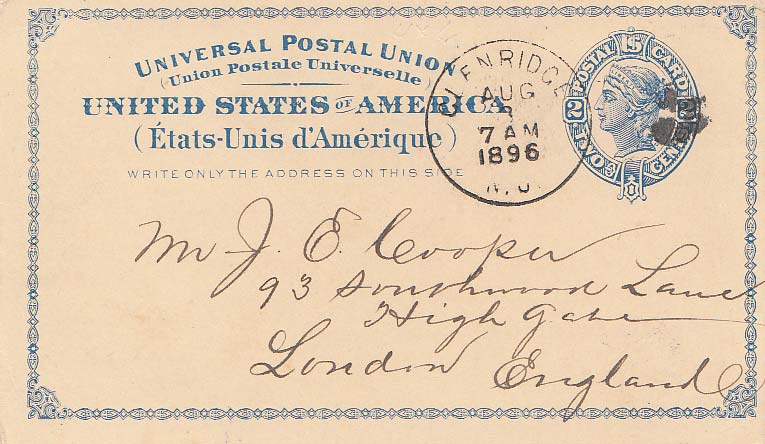 UNIVERSAL POSTAL UNION
(Union Postale Universelle)
UNITED STATES OF AMERICA
(États-Unis d'Amérique)
WRITE ONLY THE ADDRESS ON THIS SIDE
GLENRIDGE
AUG
3
7 AM
1896
N.J.
POSTAL CARD
2 2
TWO CENTS
Mr J. E. Cooper
93 Southwood Lane
High Gate
London England